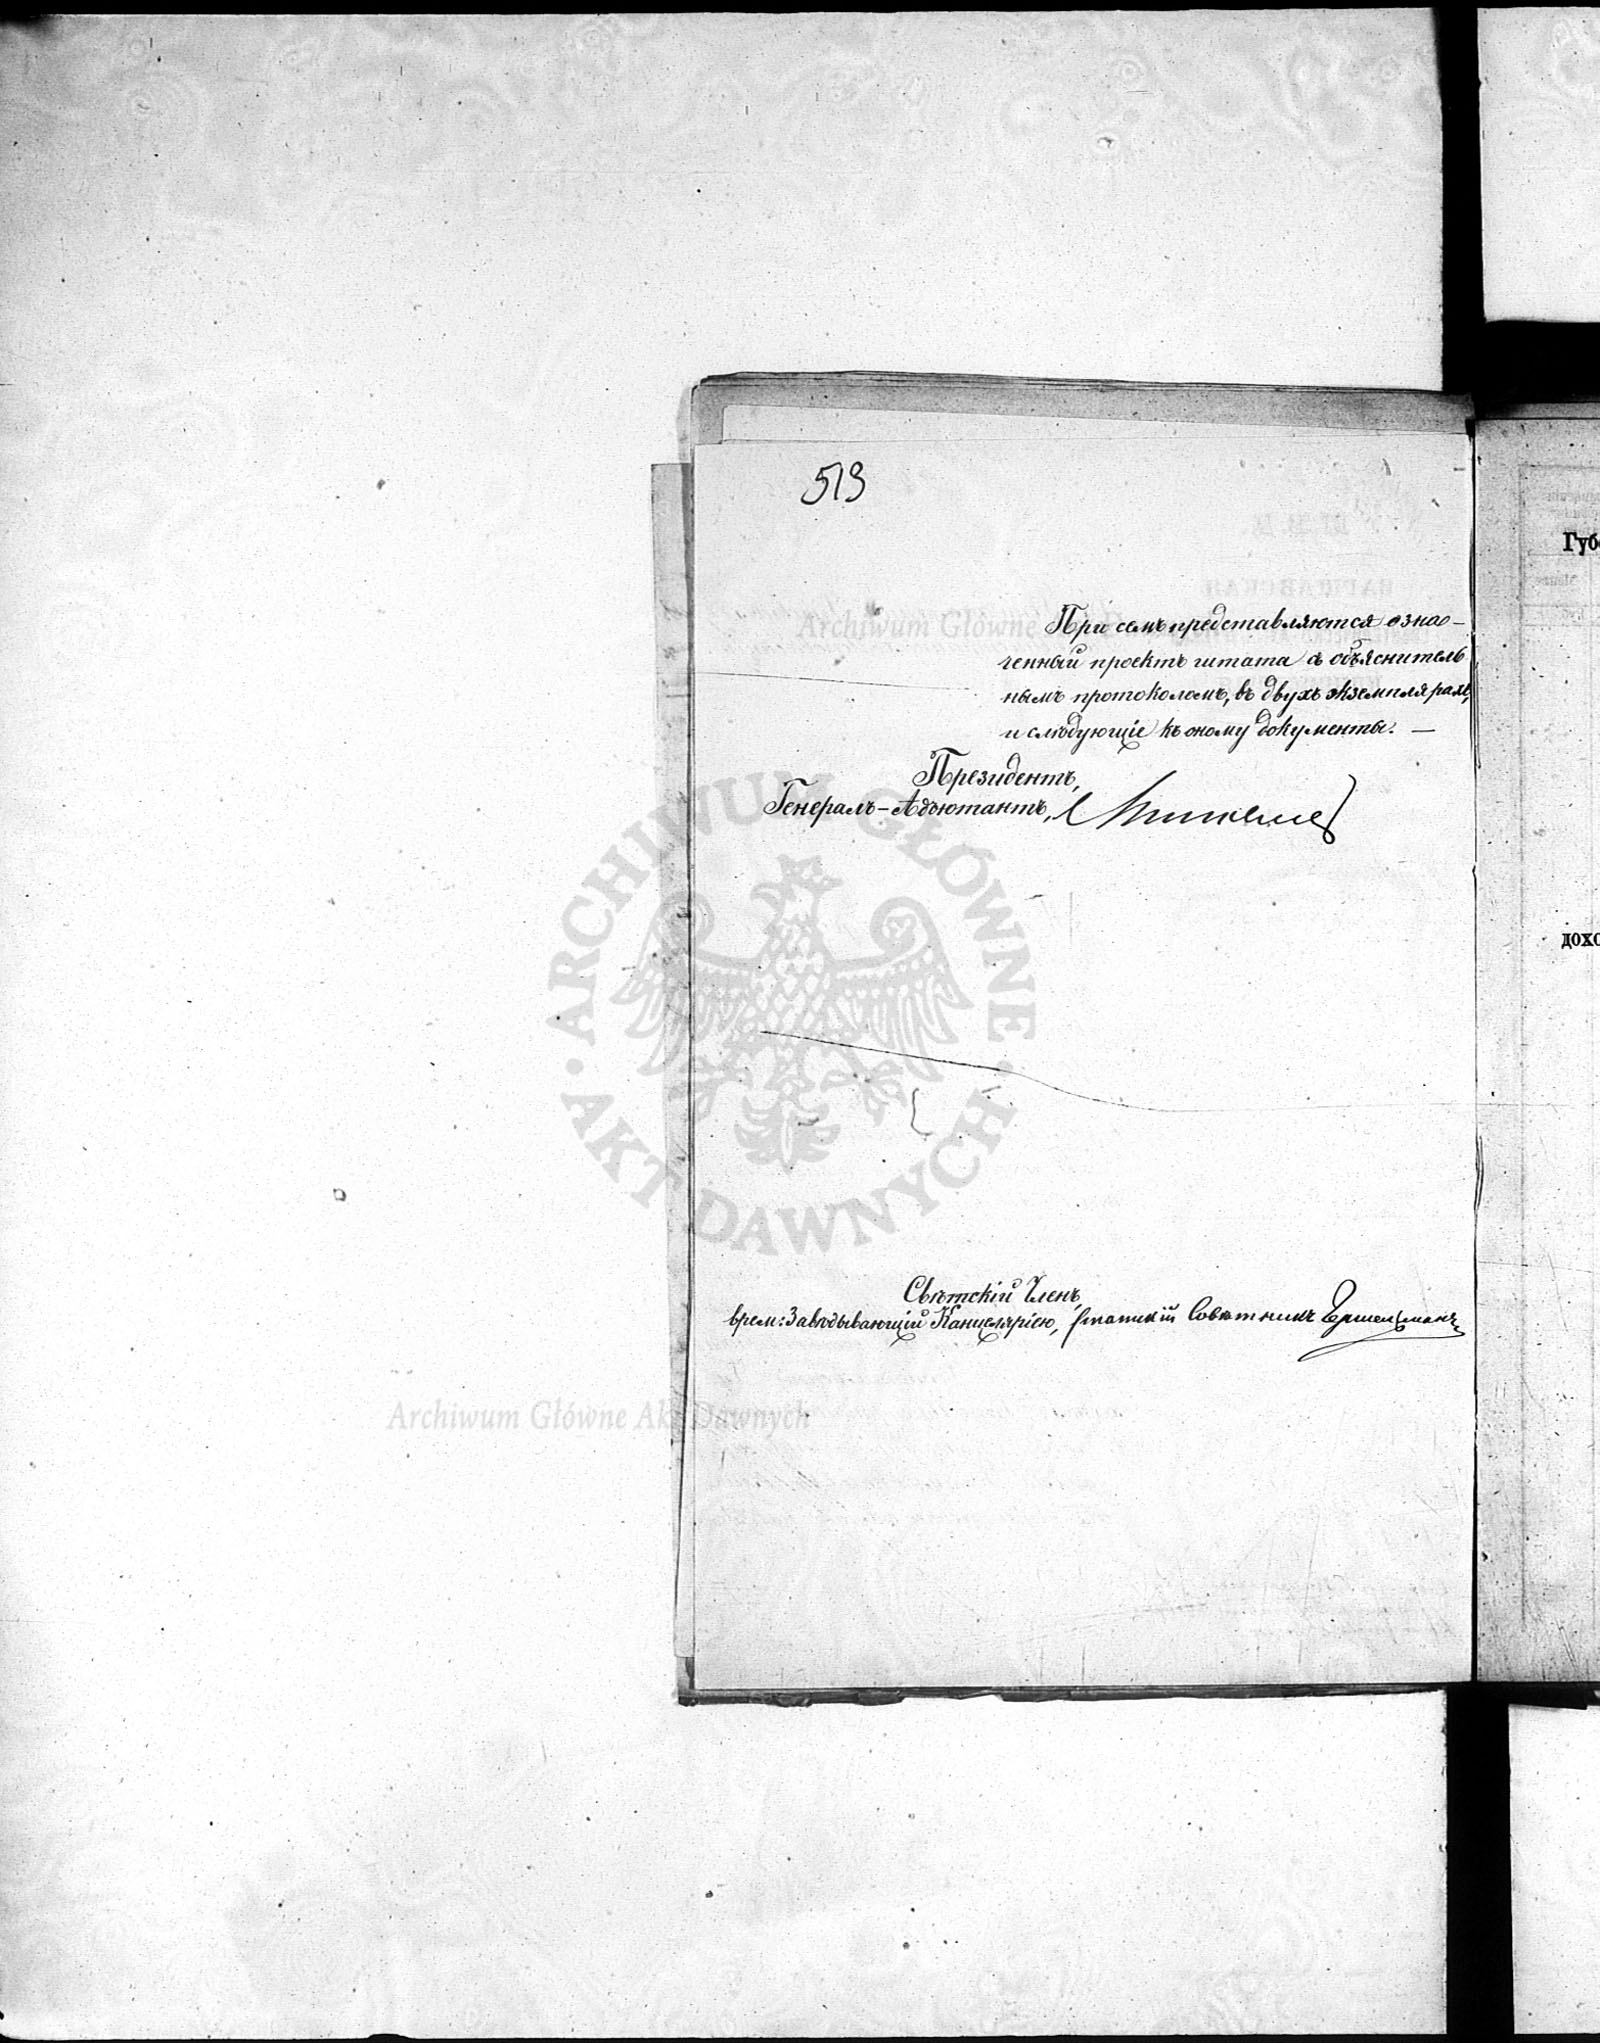 513
При семъ представляются озна-
ченный проектъ штата съ объяснитель
нымъ протоколомъ, въ двухъ экземплярахъ,
и слѣдующіе къ оному документы. —
Президентъ,
Генералъ-Адъютантъ,
Свѣтскій Членъ,
врем: Завѣдывающій Канцеляріею, Статскій Совѣтникъ
Губе
дохо
Archiwum Główne
ARCHIWUM GŁÓWNE AKT DAWNYCH
Archiwum Główne Akt Dawnych